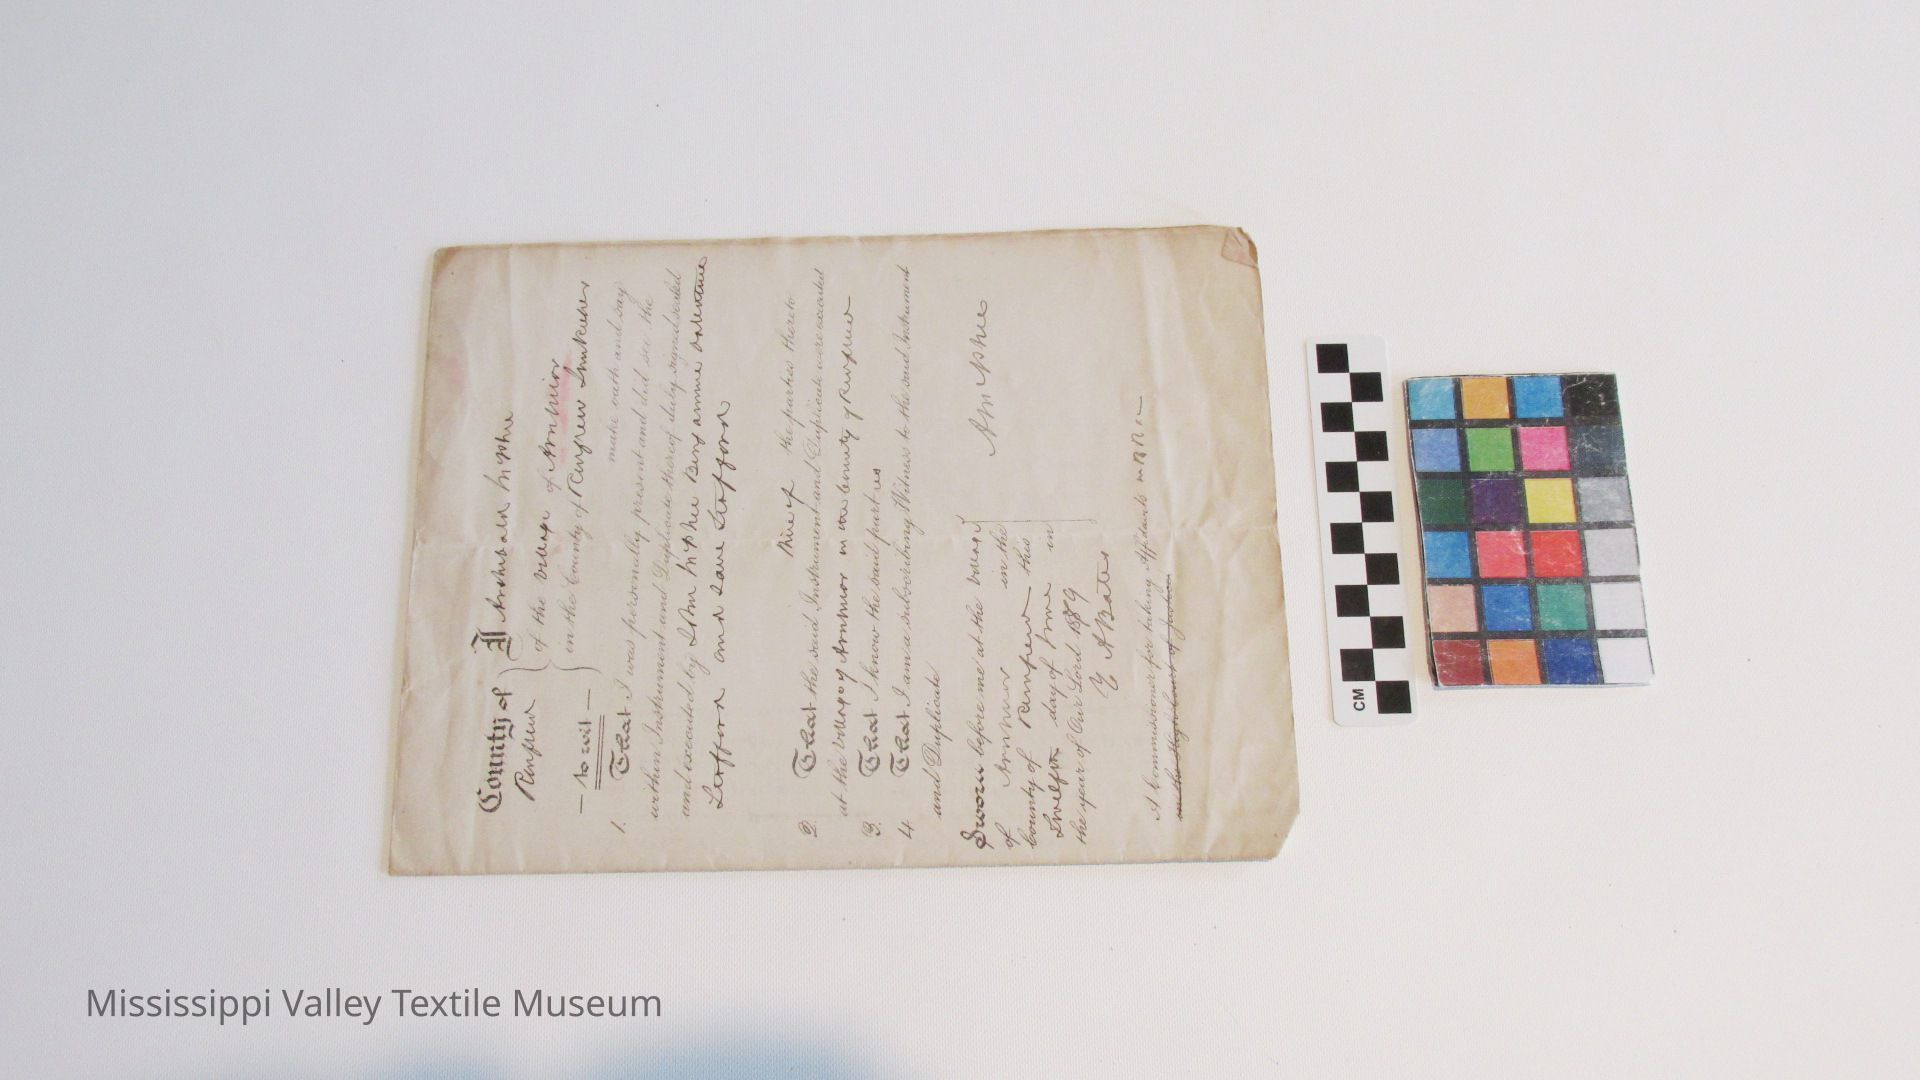 County of
Renfrew
— to wit —
I Archibald McPhee
of the village of Arnprior
in the County of Renfrew
make oath and say
1. That I was personally present and did see the
within Instrument and Duplicate thereof duly signed sealed
and executed by
and
2. That the said Instrument and Duplicate were executed
the parties thereto
at the village of Arnprior in the County of Renfrew
3. That I know the said parties
4. That I am a subscribing Witness to the said Instrument
and Duplicate
Sworn before me at the village
of Arnprior in the
County of Renfrew this
Twelfth day of June in
the year of Our Lord 1889
A McPhee
A Commissioner for taking Affidavits
CM
Mississippi Valley Textile Museum